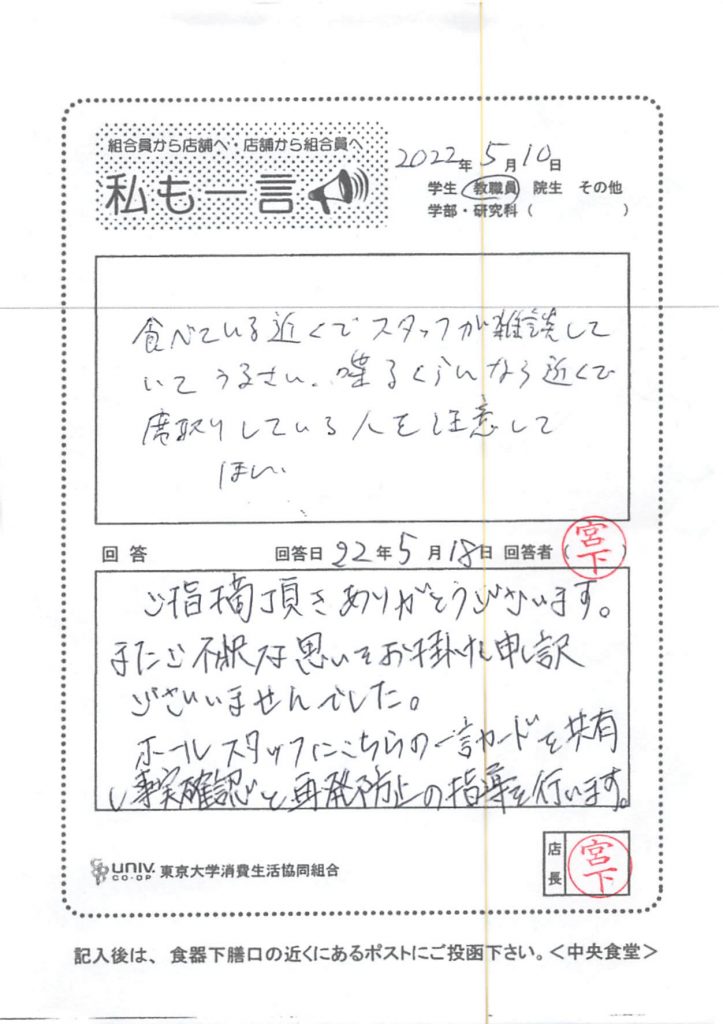 組合員から店舗へ・店舗から組合員へ
私も一言
2022年5月10日
学生 教職員 院生 その他
学部・研究科（ ）
食べている近くでスタッフが雑談して
いてうるさい。喋るくらいなら近くで
席取りしている人を注意して
ほしい
回答 回答日22年5月18日 回答者（宮下）
ご指摘頂きありがとうございます。
またご不快な思いをお掛けし申し訳
ございませんでした。
ホールスタッフにこちらの一言カードを共有
し事実確認と再発防止の指導を行います。
UNIV. CO-OP 東京大学消費生活協同組合
店長 宮下
記入後は、食器下膳口の近くにあるポストにご投函下さい。＜中央食堂＞